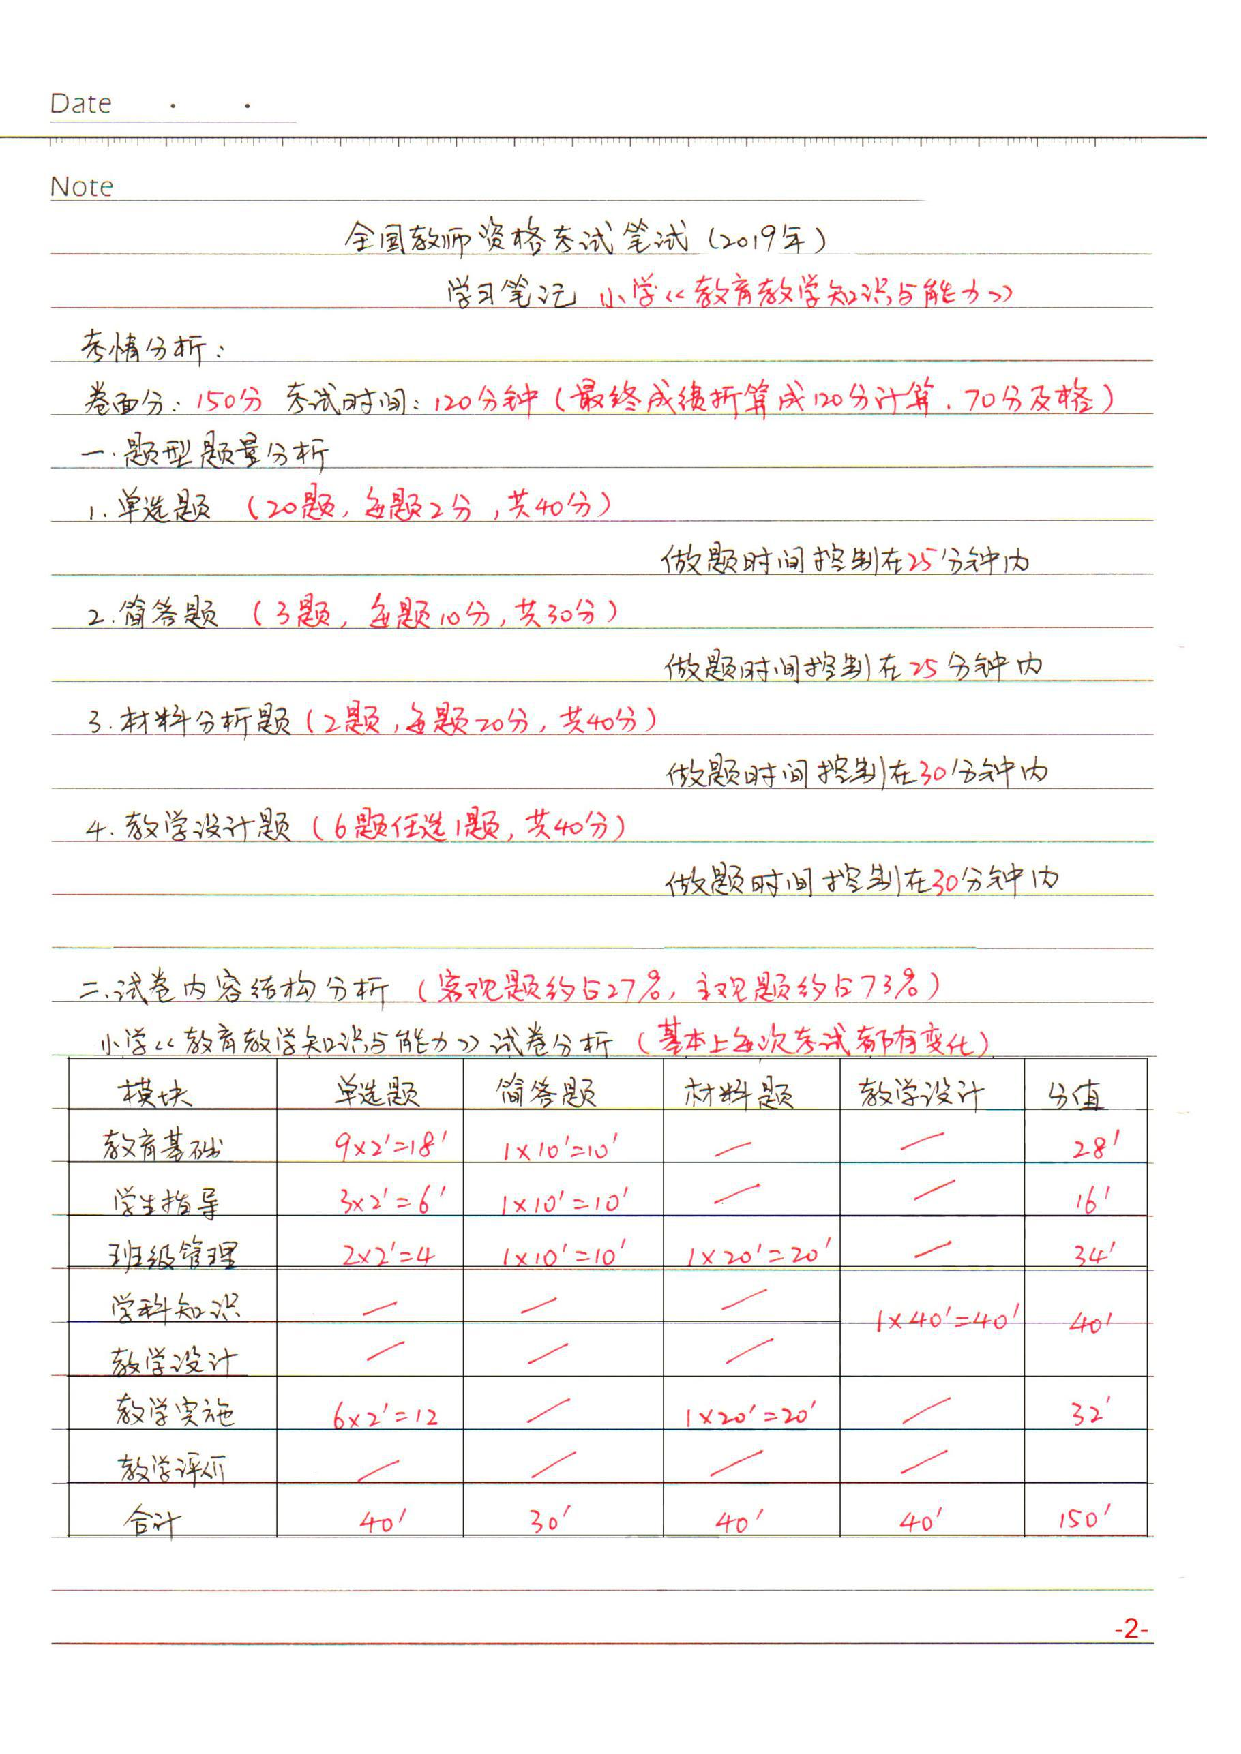 Date
Note
全国教师资格考试笔试（2019年）
学习笔记 小学《教育教学知识与能力》
考情分析：
卷面分：150分 考试时间：120分钟（最终成绩折算成120分计算，70分及格）
一.题型题量分析
1.单选题（20题，每题2分，共40分）
做题时间控制在25分钟内
2.简答题（3题，每题10分，共30分）
做题时间控制在25分钟内
3.材料分析题（2题，每题20分，共40分）
做题时间控制在30分钟内
4.教学设计题（6题任选1题，共40分）
做题时间控制在30分钟内
二.试卷内容结构分析（客观题约占27%，主观题约占73%）
小学《教育教学知识与能力》试卷分析（基本上每次考试都有变化）
模块 单选题 简答题 材料题 教学设计 分值
教育基础 9×2'=18' 1×10'=10' — — 28'
学生指导 3×2'=6' 1×10'=10' — — 16'
班级管理 2×2'=4 1×10'=10' 1×20'=20' — 34'
学科知识 — — — 1×40'=40' 40'
教学设计 — — —
教学实施 6×2'=12 — 1×20'=20' — 32'
教学评价 — — — —
合计 40' 30' 40' 40' 150'
-2-